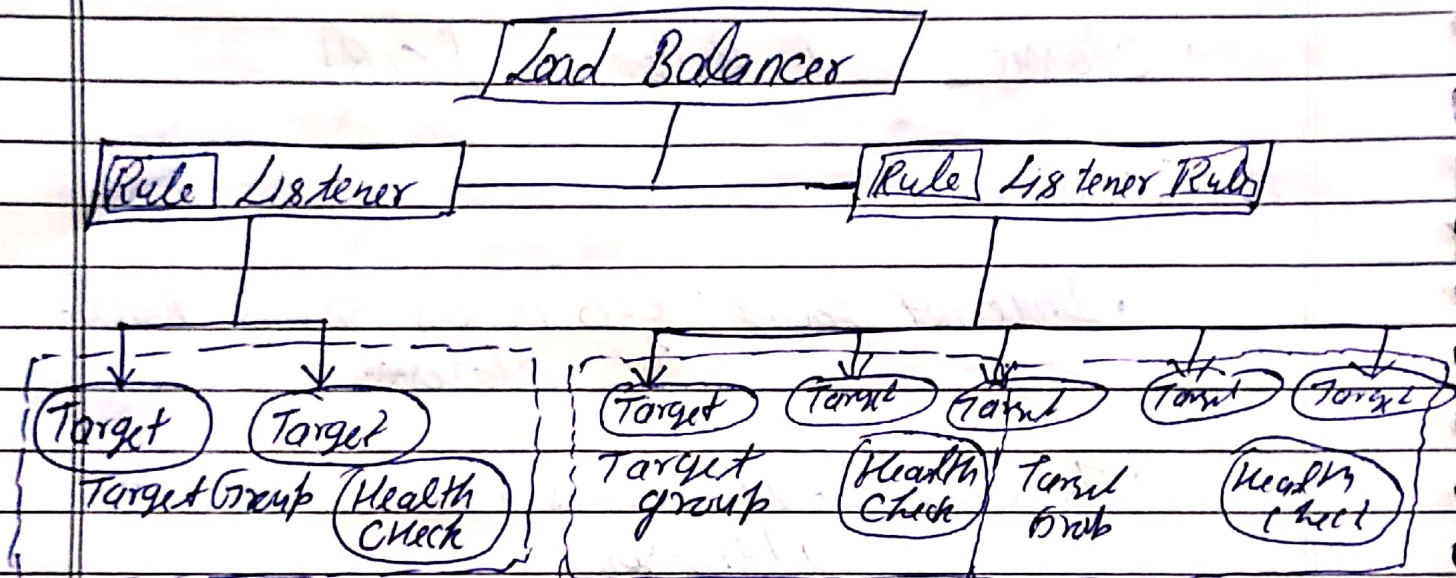 Load Balancer
Rule Listener
Rule Listener Rule
Target Target
Target Target Target Target Target
Target Group Health Check
Target group Health Check
Target Group Health Check